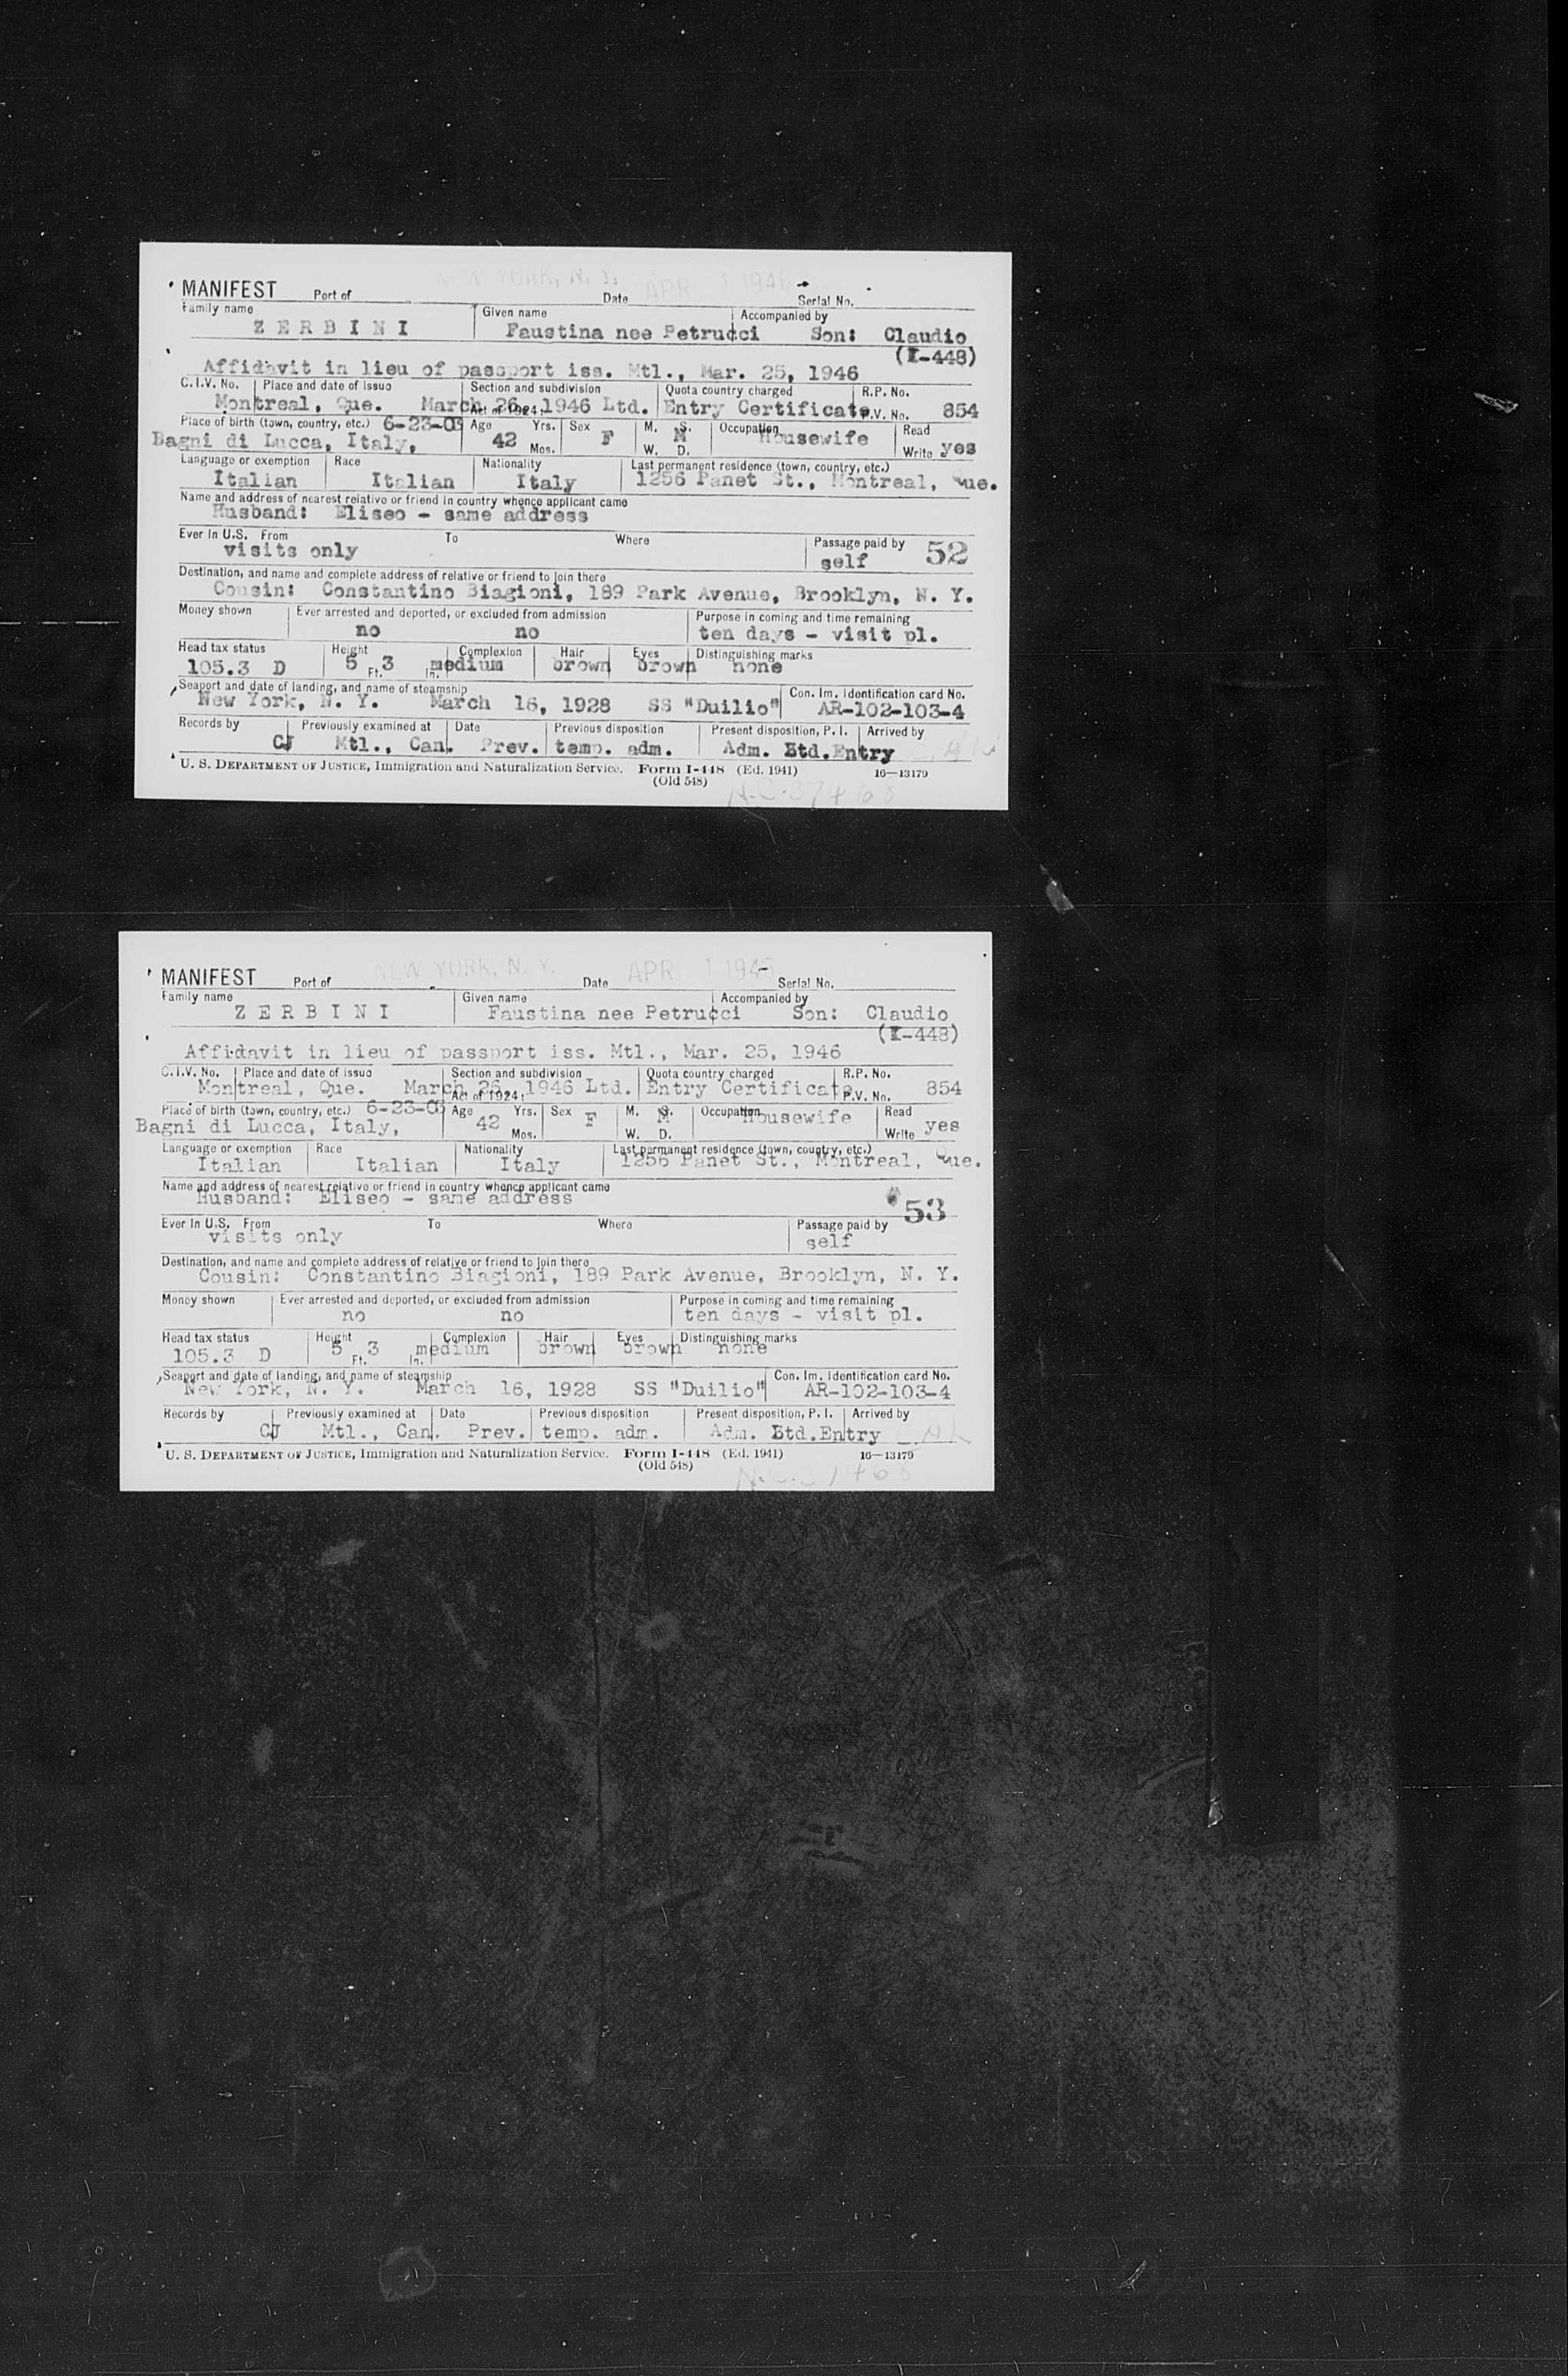 NEW YORK, N. Y. APR 1 1946
MANIFEST Port of Date Serial No.
Family name Given name Accompanied by
ZERBINI Faustina nee Petrucci Son: Claudio
(I-448)
Affidavit in lieu of passport iss. Mtl., Mar. 25, 1946
C.I.V. No. Place and date of issue Section and subdivision Quota country charged R.P. No.
Montreal, Que. March 26, 1946 Ltd. Entry Certificate 854
Act of 1924: P.V. No.
Place of birth (town, country, etc.) 6-23-03 Age Yrs. Sex M. S. Occupation Read
Bagni di Lucca, Italy, 42 F M Housewife yes
Mos. W. D. Write
Language or exemption Race Nationality Last permanent residence (town, country, etc.)
Italian Italian Italy 1256 Panet St., Montreal, Que.
Name and address of nearest relative or friend in country whence applicant came
Husband: Eliseo - same address
Ever in U.S. From To Where Passage paid by 52
visits only self
Destination, and name and complete address of relative or friend to join there
Cousin: Constantino Biagioni, 189 Park Avenue, Brooklyn, N. Y.
Money shown Ever arrested and deported, or excluded from admission Purpose in coming and time remaining
no no ten days - visit pl.
Head tax status Height Complexion Hair Eyes Distinguishing marks
105.3 D 5 Ft. 3 In. medium brown brown none
Seaport and date of landing, and name of steamship Con. Im. Identification card No.
New York, N. Y. March 16, 1928 SS "Duilio" AR-102-103-4
Records by Previously examined at Date Previous disposition Present disposition, P. I. Arrived by
CJ Mtl., Can. Prev. temp. adm. Adm. Ltd.Entry
U. S. DEPARTMENT OF JUSTICE, Immigration and Naturalization Service. Form I-448 (Ed. 1941) 16—13179
(Old 548)
NEW YORK, N. Y. APR 1 194
MANIFEST Port of Date Serial No.
Family name Given name Accompanied by
ZERBINI Faustina nee Petrucci Son: Claudio
(I-448)
Affidavit in lieu of passport iss. Mtl., Mar. 25, 1946
C.I.V. No. Place and date of issue Section and subdivision Quota country charged R.P. No.
Montreal, Que. March 26, 1946 Ltd. Entry Certificate 854
Act of 1924: P.V. No.
Place of birth (town, country, etc.) 6-23-03 Age Yrs. Sex M. S. Occupation Read
Bagni di Lucca, Italy, 42 F M Housewife yes
Mos. W. D. Write
Language or exemption Race Nationality Last permanent residence (town, country, etc.)
Italian Italian Italy 1256 Panet St., Montreal, Que.
Name and address of nearest relative or friend in country whence applicant came
Husband: Eliseo - same address 53
Ever in U.S. From To Where Passage paid by
visits only self
Destination, and name and complete address of relative or friend to join there
Cousin: Constantino Biagioni, 189 Park Avenue, Brooklyn, N. Y.
Money shown Ever arrested and deported, or excluded from admission Purpose in coming and time remaining
no no ten days - visit pl.
Head tax status Height Complexion Hair Eyes Distinguishing marks
105.3 D 5 Ft. 3 In. medium brown brown none
Seaport and date of landing, and name of steamship Con. Im. Identification card No.
New York, N. Y. March 16, 1928 SS "Duilio" AR-102-103-4
Records by Previously examined at Date Previous disposition Present disposition, P. I. Arrived by
CJ Mtl., Can. Prev. temp. adm. Adm. Ltd.Entry
U. S. DEPARTMENT OF JUSTICE, Immigration and Naturalization Service. Form I-448 (Ed. 1941) 16—13179
(Old 548)